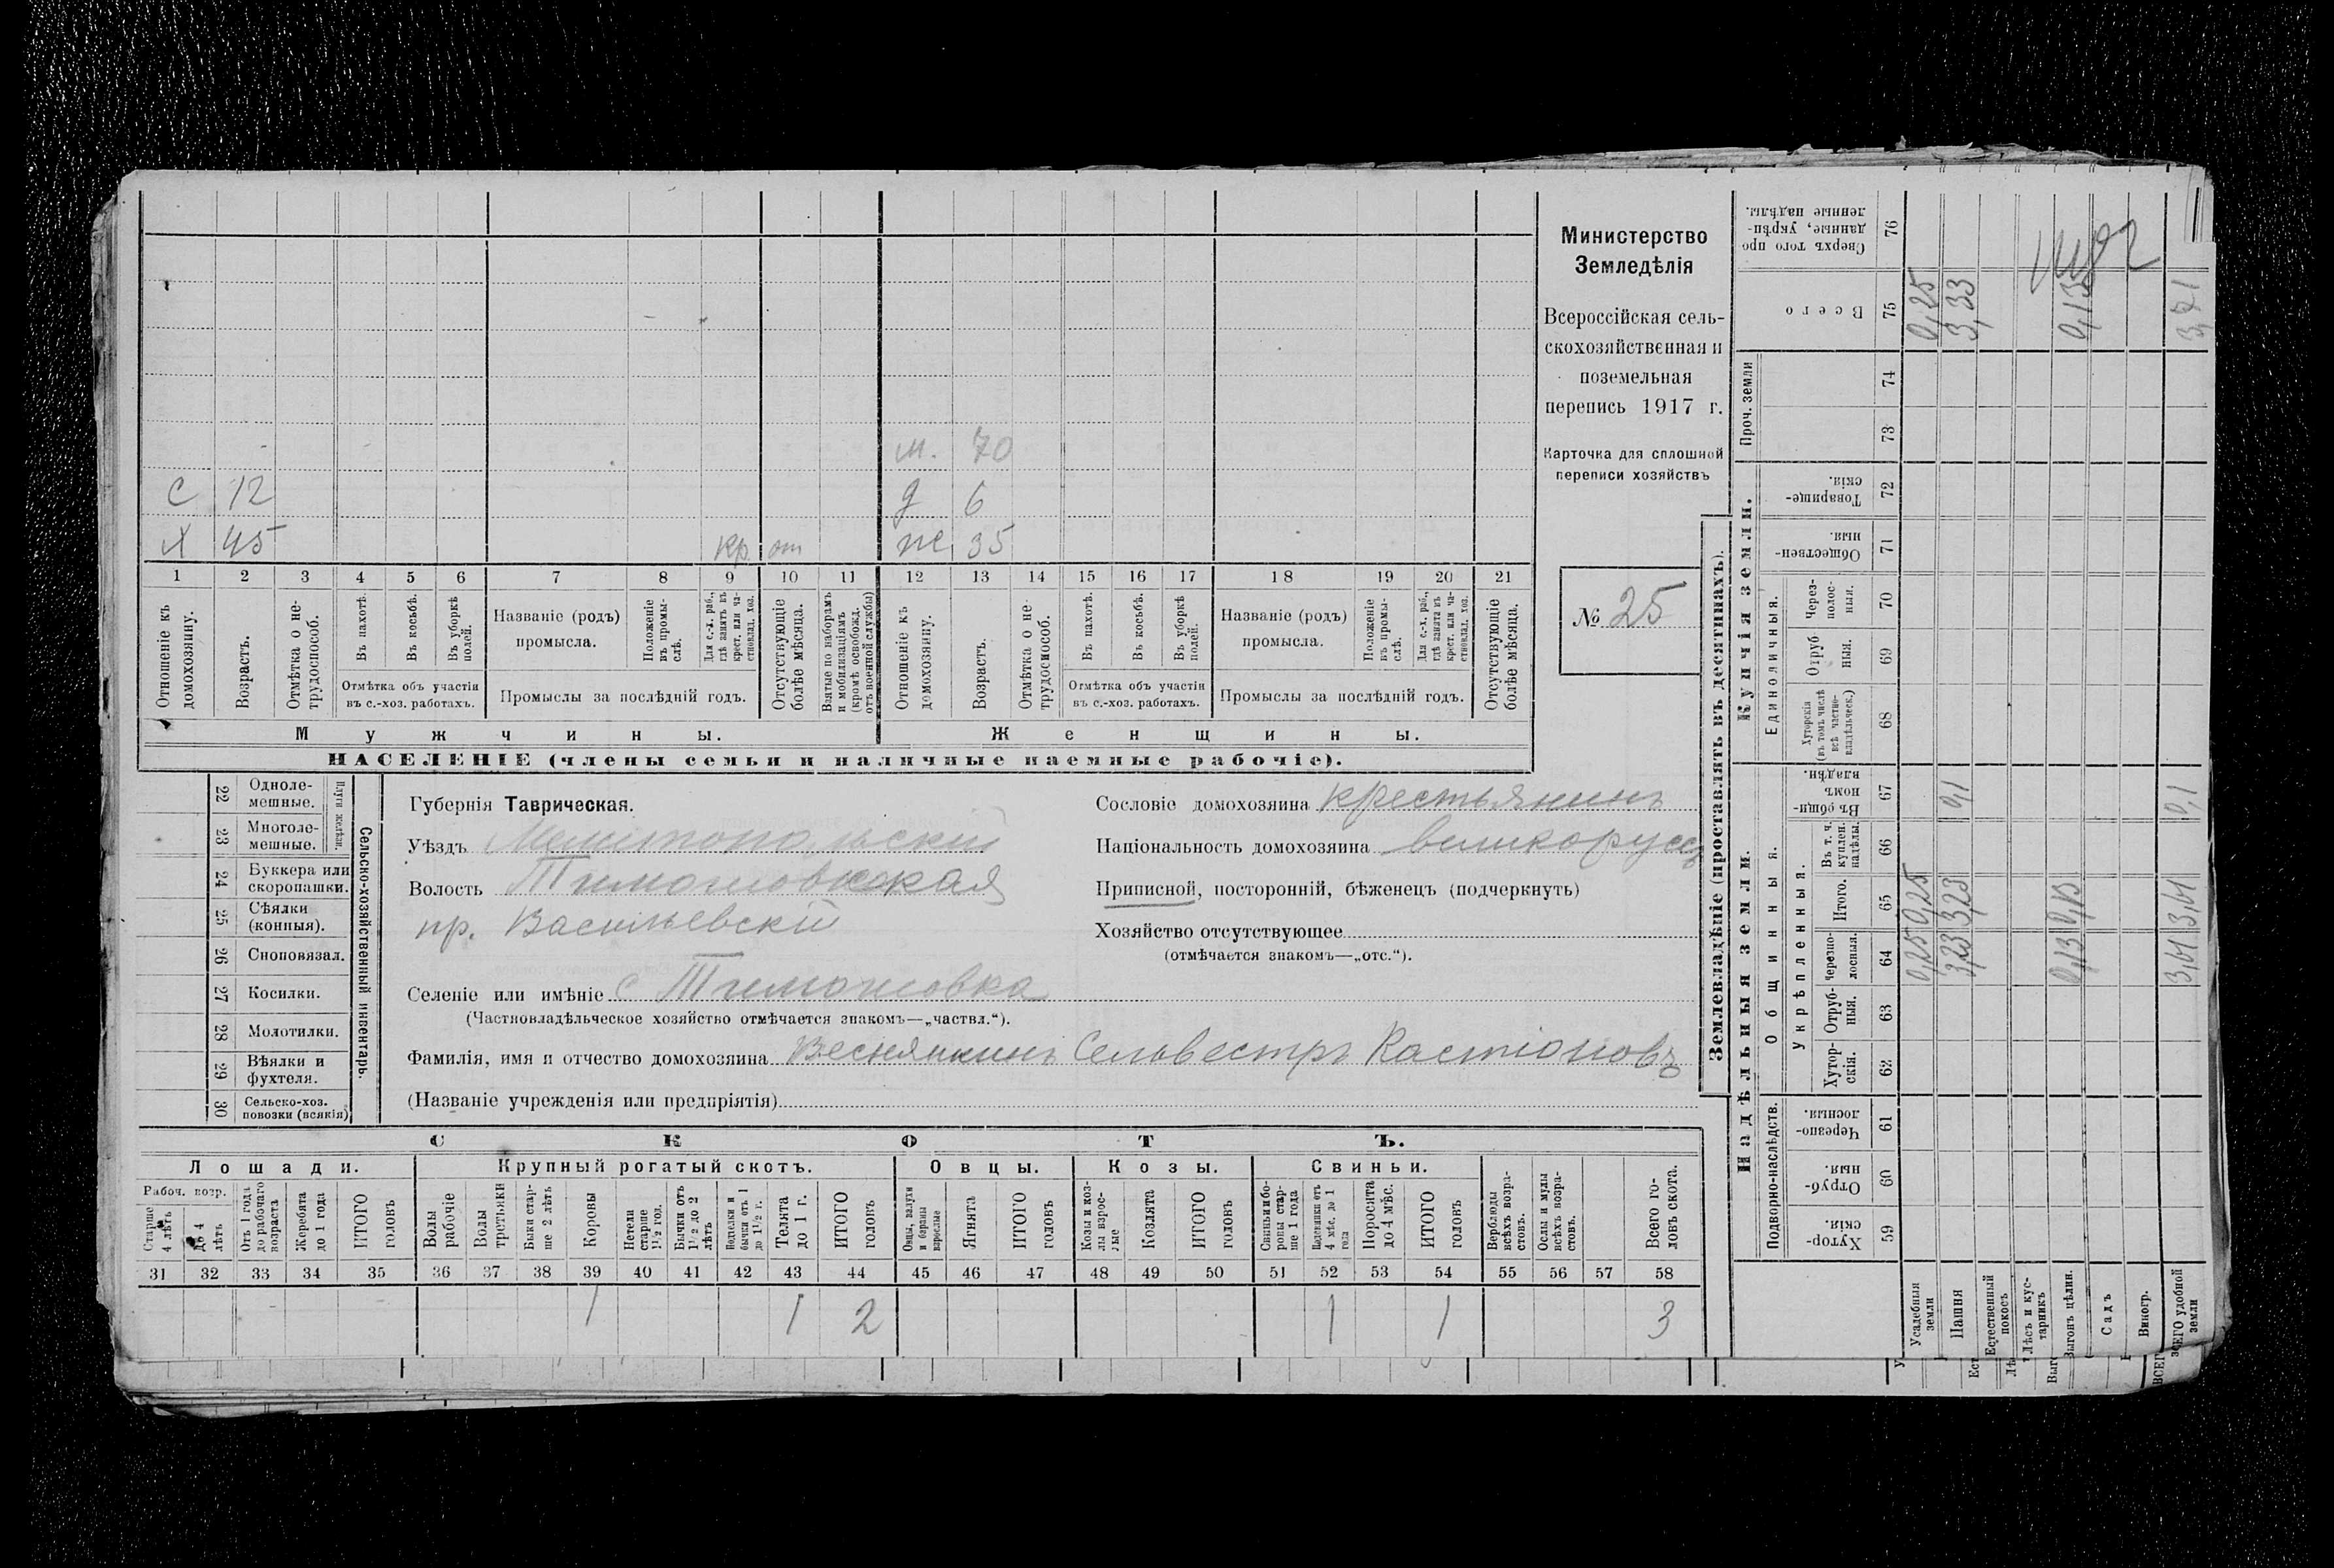 Министерство
Земледѣлія
Всероссійская сель-
скохозяйственная и
поземельная
перепись 1917 г.
Карточка для сплошной
переписи хозяйствъ
№ 25
м. 70
с 12
д 6
х 45 кр. от же 35
1 2 3 4 5 6 7 8 9 10 11 12 13 14 15 16 17 18 19 20 21
Отношеніе къ домохозяину.
Возрастъ.
Отмѣтка о не-трудоспособ.
Въ пахотѣ.
Въ косьбѣ.
Въ уборкѣ полей.
Отмѣтка объ участіи
въ с.-хоз. работахъ.
Названіе (родъ)
промысла.
Положеніе въ промы-слѣ.
Для с.-х. раб., гдѣ занятъ въ крест. или ча-стновлад. хоз.
Промыслы за послѣдній годъ.
Отсутствующіе болѣе мѣсяца.
Взятые по наборамъ и мобилизаціямъ (кромѣ освобожд. отъ военной службы)
Отношеніе къ домохозяину.
Возрастъ.
Отмѣтка о не-трудоспособ.
Въ пахотѣ.
Въ косьбѣ.
Въ уборкѣ полей.
Отмѣтка объ участіи
въ с.-хоз. работахъ.
Названіе (родъ)
промысла.
Положеніе въ промы-слѣ.
Для с.-х. раб., гдѣ занята въ крест. или ча-стновлад. хоз.
Промыслы за послѣдній годъ.
Отсутствующіе болѣе мѣсяца.
Мужчины.
Женщины.
НАСЕЛЕНІЕ (члены семьи и наличные наемные рабочіе).
22 Одноле-
мешные.
23 Многоле-
мешные.
Плуги желѣзн.
24 Буккера или
скоропашки.
25 Сѣялки
(конныя).
26 Сноповязал.
27 Косилки.
28 Молотилки.
29 Вѣялки и
фухтеля.
30 Сельско-хоз.
повозки (всякія)
Сельско-хозяйственный инвентарь.
Губернія Таврическая.
Уѣздъ Мелитопольскій
Волость Тимошовская
пр. Васильевскій
Селеніе или имѣніе с Тимошовка
(Частновладѣльческое хозяйство отмѣчается знакомъ—„частвл.“).
Фамилія, имя и отчество домохозяина Веснянкинъ Сельвестръ Кастіоновъ
(Названіе учрежденія или предпріятія)
Сословіе домохозяина крестьянинъ
Національность домохозяина великоруссъ
Приписной, посторонній, бѣженецъ (подчеркнуть)
Хозяйство отсутствующее
(отмѣчается знакомъ—„отс.“).
СКОТЪ.
Лошади. Крупный рогатый скотъ. Овцы. Козы. Свиньи.
Рабоч. возр.
Старше 4 лѣтъ
До 4 лѣтъ
Отъ 1 года до рабочаго возраста
Жеребята до 1 года
ИТОГО головъ
Волы рабочіе
Волы третьяки
Быки стар-ше 2 лѣтъ
Коровы
Нетели старше 1½ год.
Бычки отъ 1½ до 2 лѣтъ
бычки отъ 1 до 1½ г.
Телята до 1 г.
ИТОГО головъ
Овцы, валухи и бараны взрослые
Ягнята
ИТОГО головъ
Козы и коз-лы взрос-лые
Козлята
ИТОГО головъ
Свиньи и бо-ровы стар-ше 1 года
Подсвинки отъ 4 мѣс. до 1 года
Поросята до 4 мѣс.
ИТОГО головъ
Верблюды всѣхъ возра-стовъ.
Ослы и мулы всѣхъ возра-стовъ.
Всего го-ловъ скота.
31 32 33 34 35 36 37 38 39 40 41 42 43 44 45 46 47 48 49 50 51 52 53 54 55 56 57 58
1 1 2 1 1 3
Землевладѣніе (проставлять въ десятинахъ).
Купчія земли.
Надѣльныя земли.
Сверхъ того про-данные, укрѣп-ленные надѣлы. 76
Всего 75 0,25 3,33 0,13 3,71
Проч. земли
74
73
Товарище-скія. 72
Обществен-ныя. 71
Единоличныя.
Через-полос-ныя. 70
Отруб-ныя. 69
Хуторскія (въ томъ числѣ всѣ частно-владѣльческ.) 68
Общинныя.
Въ общин-номъ владѣн. 67 0,1 0,1
Укрѣпленныя.
Въ т. ч. куплен. надѣлы. 66
Итого. 65 0,25 3,23 0,13 3,61
Черезпо-лосная. 64 0,25 3,23 0,13 3,61
Отруб-ныя. 63
Хутор-скія. 62
Подворно-наслѣдств.
Черезпо-лосныя. 61
Отруб-ныя. 60
Хутор-скія. 59
Усадебныя земли
Пашня
Естественный покосъ
Лѣсъ и кус-тарникъ
Выгонъ цѣлин.
Садъ
Виногр.
ВСЕГО удобной земли